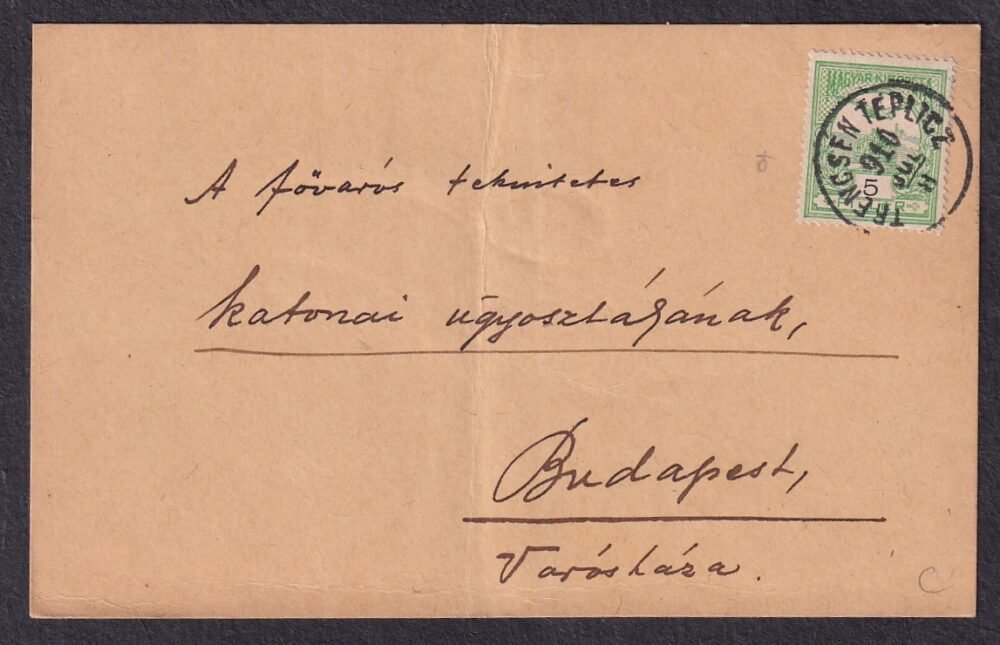 MAGYAR KIR. POSTA
TRENCSEN TEPLICZ
910
5
A főváros tekintetes
katonai ügyosztályának,
Budapest,
Városháza.
C